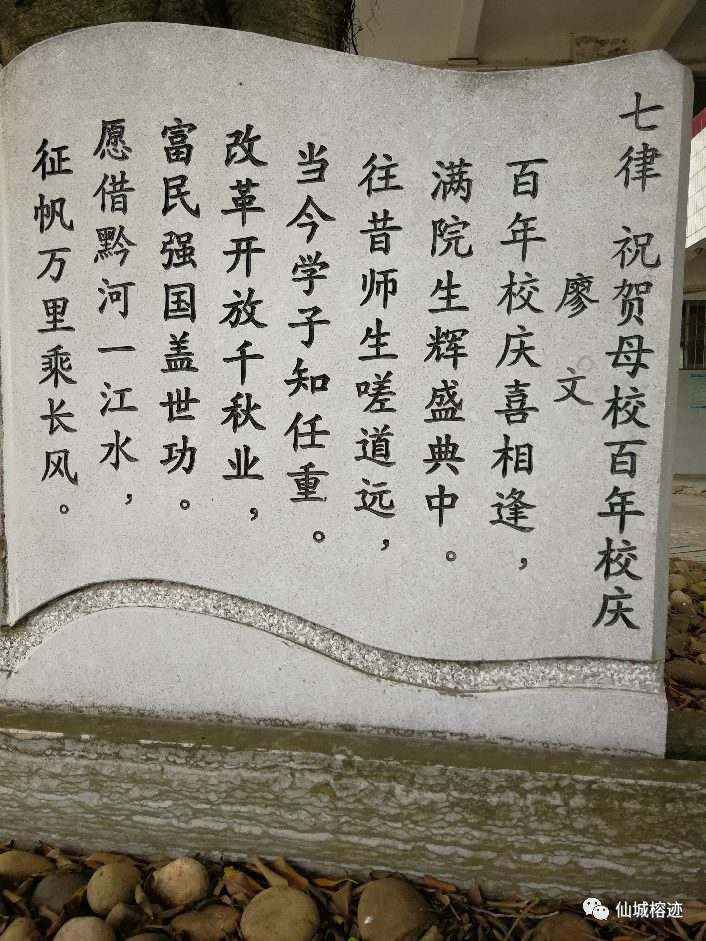 七律 祝贺母校百年校庆
廖文
百年校庆喜相逢，
满院生辉盛典中。
往昔师生嗟道远，
当今学子知任重。
改革开放千秋业，
富民强国盖世功。
愿借黔河一江水，
征帆万里乘长风。
仙城榕迹